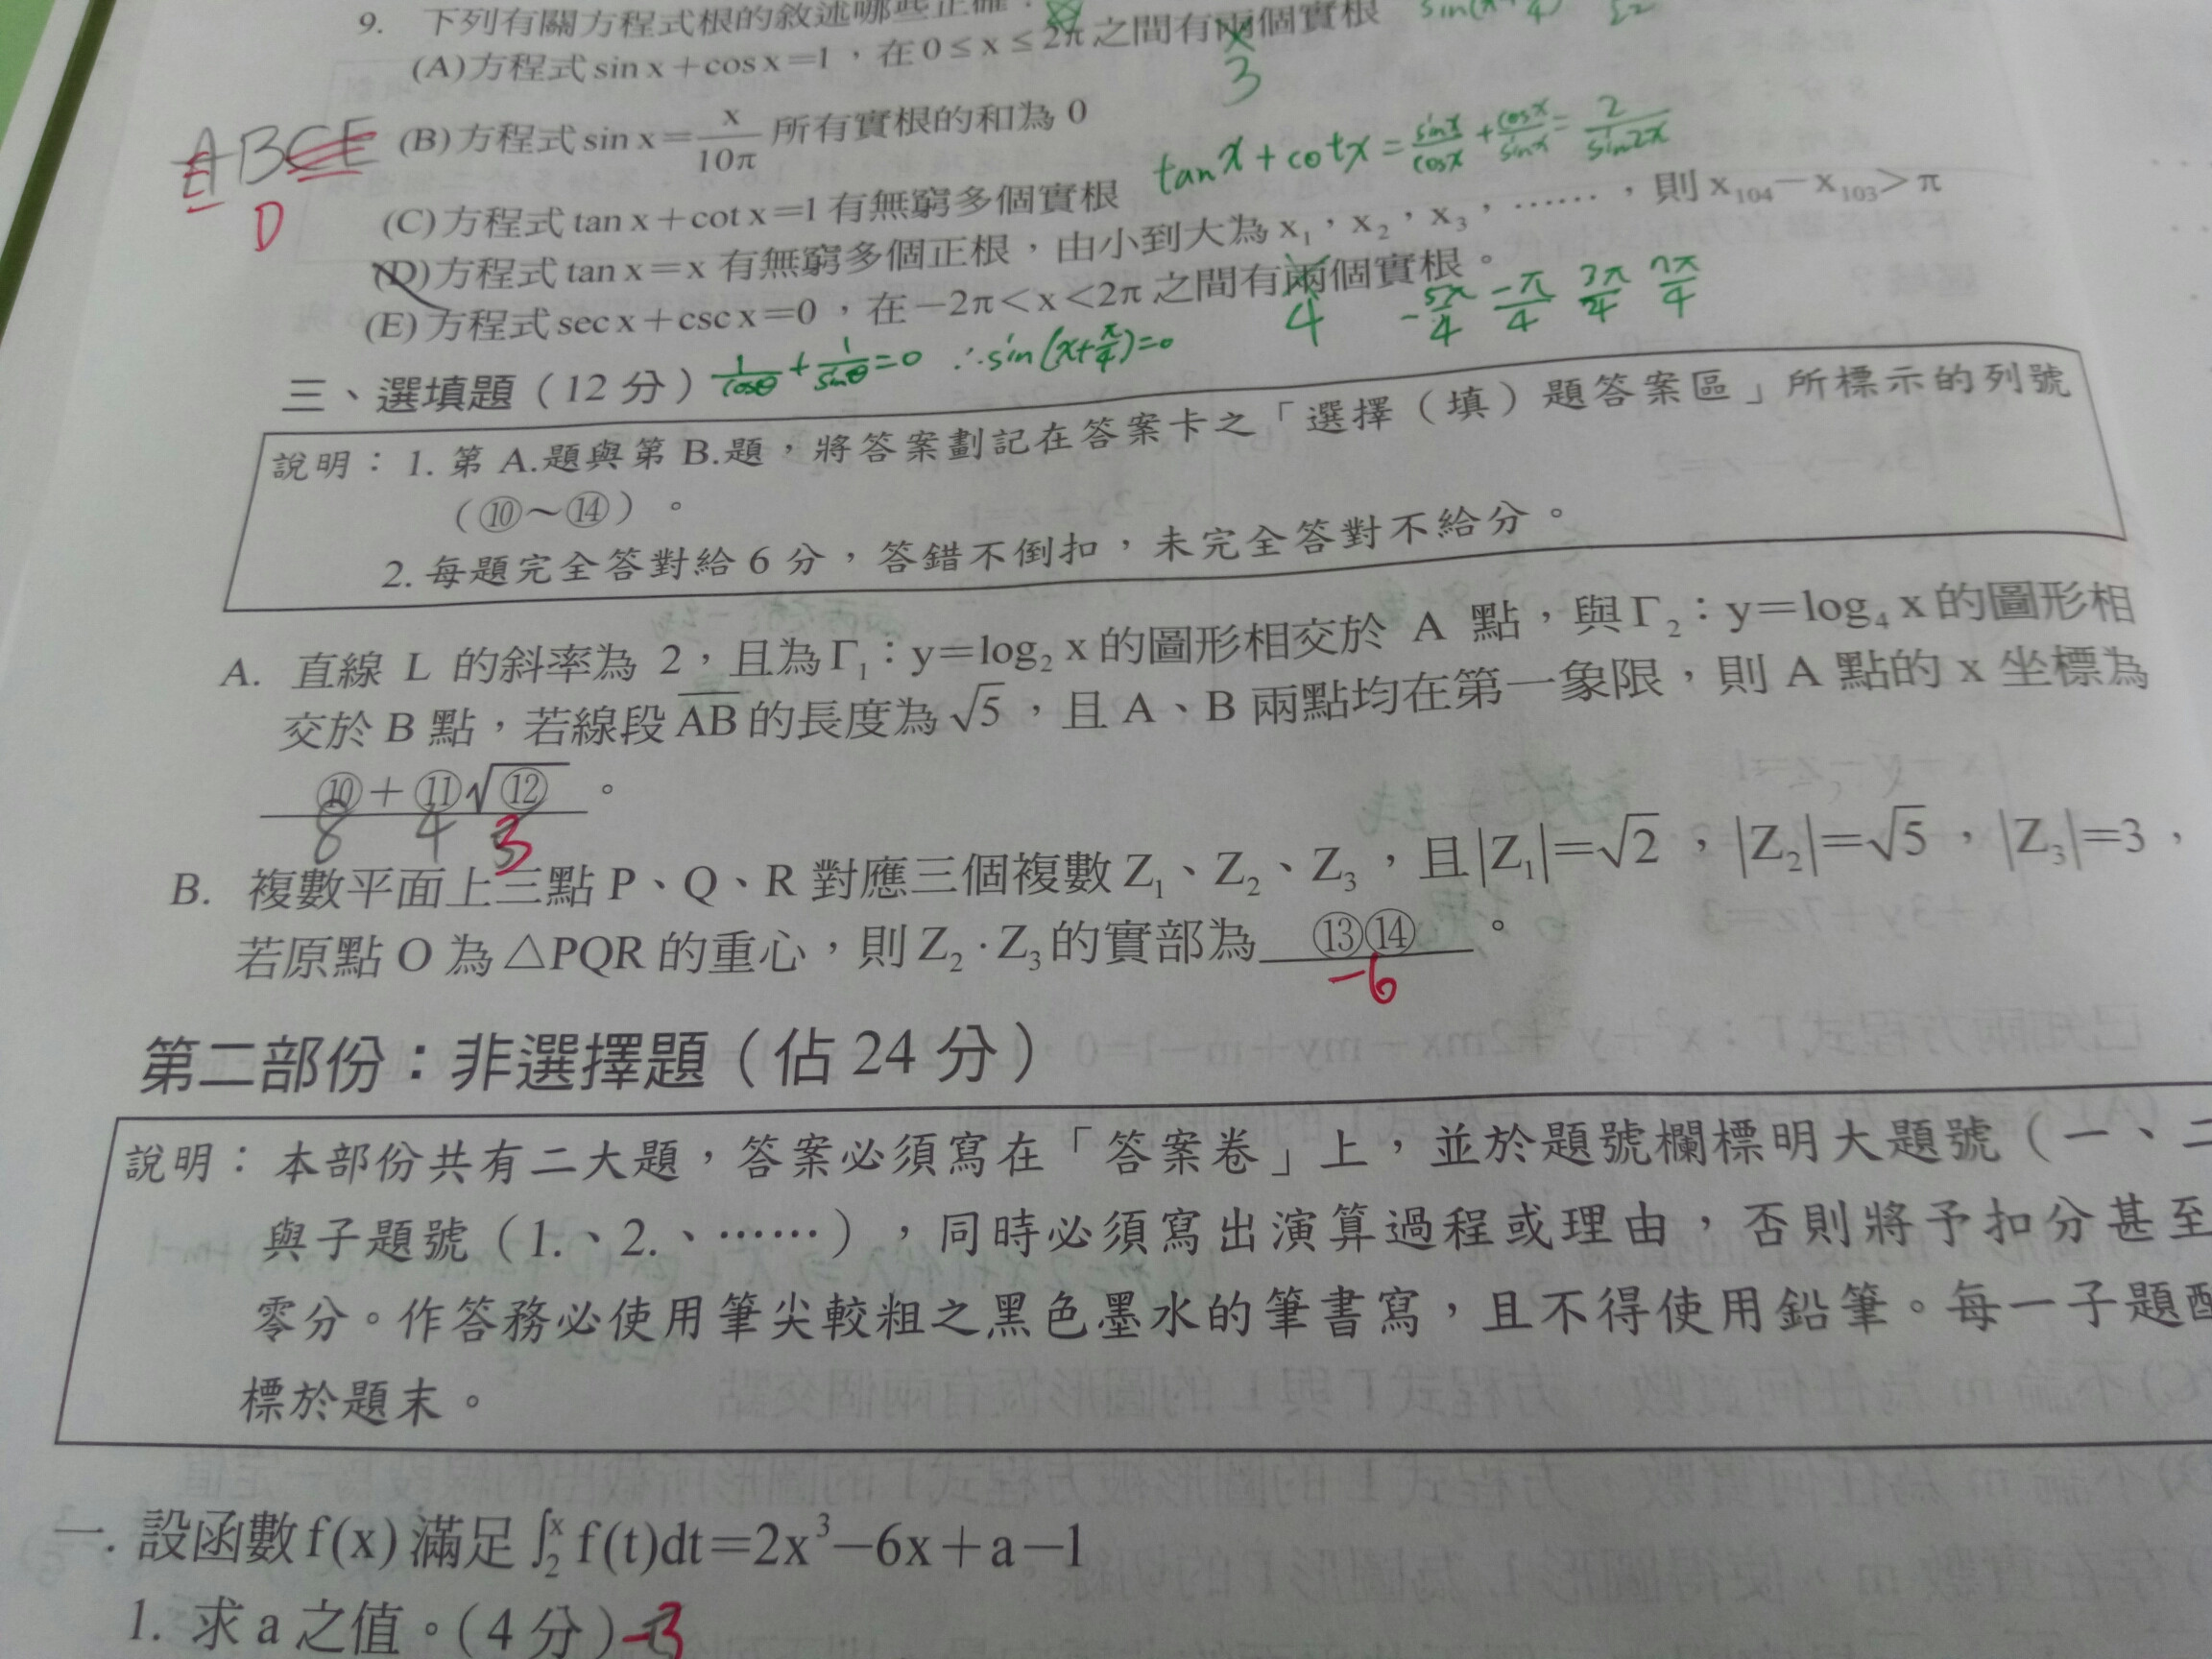 9. 下列有關方程式根的敘述哪些正確：
sin(x+π/4)
(A)方程式 sin x+cos x=1，在 0≤x≤2π 之間有兩個實根
3
ABCE
E
D
(B)方程式 sin x=x/10π 所有實根的和為 0
tanx+cotx=sinx/cosx+cosx/sinx=2/sin2x
(C)方程式 tan x+cot x=1 有無窮多個實根
(D)方程式 tan x=x 有無窮多個正根，由小到大為 x₁，x₂，x₃，……，則 x₁₀₄−x₁₀₃>π
(E)方程式 sec x+csc x=0，在−2π<x<2π 之間有兩個實根。
4 -5π/4 -π/4 3π/4 7π/4
三、選填題（12 分）
1/cosθ+1/sinθ=0 ∴sin(x+π/4)=0
說明：1. 第 A.題與第 B.題，將答案劃記在答案卡之「選擇（填）題答案區」所標示的列號
（⑩～⑭）。
2. 每題完全答對給 6 分，答錯不倒扣，未完全答對不給分。
A. 直線 L 的斜率為 2，且為Γ₁：y=log₂ x 的圖形相交於 A 點，與Γ₂：y=log₄ x 的圖形相
交於 B 點，若線段 A̅B̅ 的長度為√5，且 A、B 兩點均在第一象限，則 A 點的 x 坐標為
⑩+⑪√⑫。
8 4 3
B. 複數平面上三點 P、Q、R 對應三個複數 Z₁、Z₂、Z₃，且|Z₁|=√2，|Z₂|=√5，|Z₃|=3，
若原點 O 為△PQR 的重心，則 Z₂·Z₃ 的實部為⑬⑭。
-6
第二部份：非選擇題（佔 24 分）
說明：本部份共有二大題，答案必須寫在「答案卷」上，並於題號欄標明大題號（一、二
與子題號（1.、2.、……），同時必須寫出演算過程或理由，否則將予扣分甚至
零分。作答務必使用筆尖較粗之黑色墨水的筆書寫，且不得使用鉛筆。每一子題配
標於題末。
一. 設函數 f(x) 滿足 ∫₂ˣ f(t)dt=2x³−6x+a−1
1. 求 a 之值。(4 分) -3